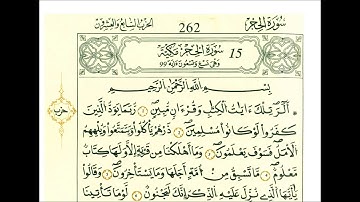 سورة الحجر
262
الحزب السابع والعشرون
15 سورة الحجر مكية
وهي تسع وتسعون آية 99
بِسْمِ اللَّهِ الرَّحْمَٰنِ الرَّحِيمِ
أَلَٓرۖ تِلْكَ ءَايَٰتُ الْكِتَٰبِ وَقُرْءَانٖ مُّبِينٖ رُّبَمَا يَوَدُّ الَّذِينَ
حزب
كَفَرُوا لَوْ كَانُوا مُسْلِمِينَ ذَرْهُمْ يَأْكُلُوا وَيَتَمَتَّعُوا وَيُلْهِهِمُ
الْأَمَلُ فَسَوْفَ يَعْلَمُونَ وَمَا أَهْلَكْنَا مِن قَرْيَةٍ إِلَّا وَلَهَا كِتَابٞ
مَّعْلُومٞ مَّا تَسْبِقُ مِنْ أُمَّةٍ أَجَلَهَا وَمَا يَسْتَٰخِرُونَ وَقَالُوا
يَٰأَيُّهَا الَّذِي نُزِّلَ عَلَيْهِ الذِّكْرُ إِنَّكَ لَمَجْنُونٞ لَّوْ مَا تَأْتِينَا